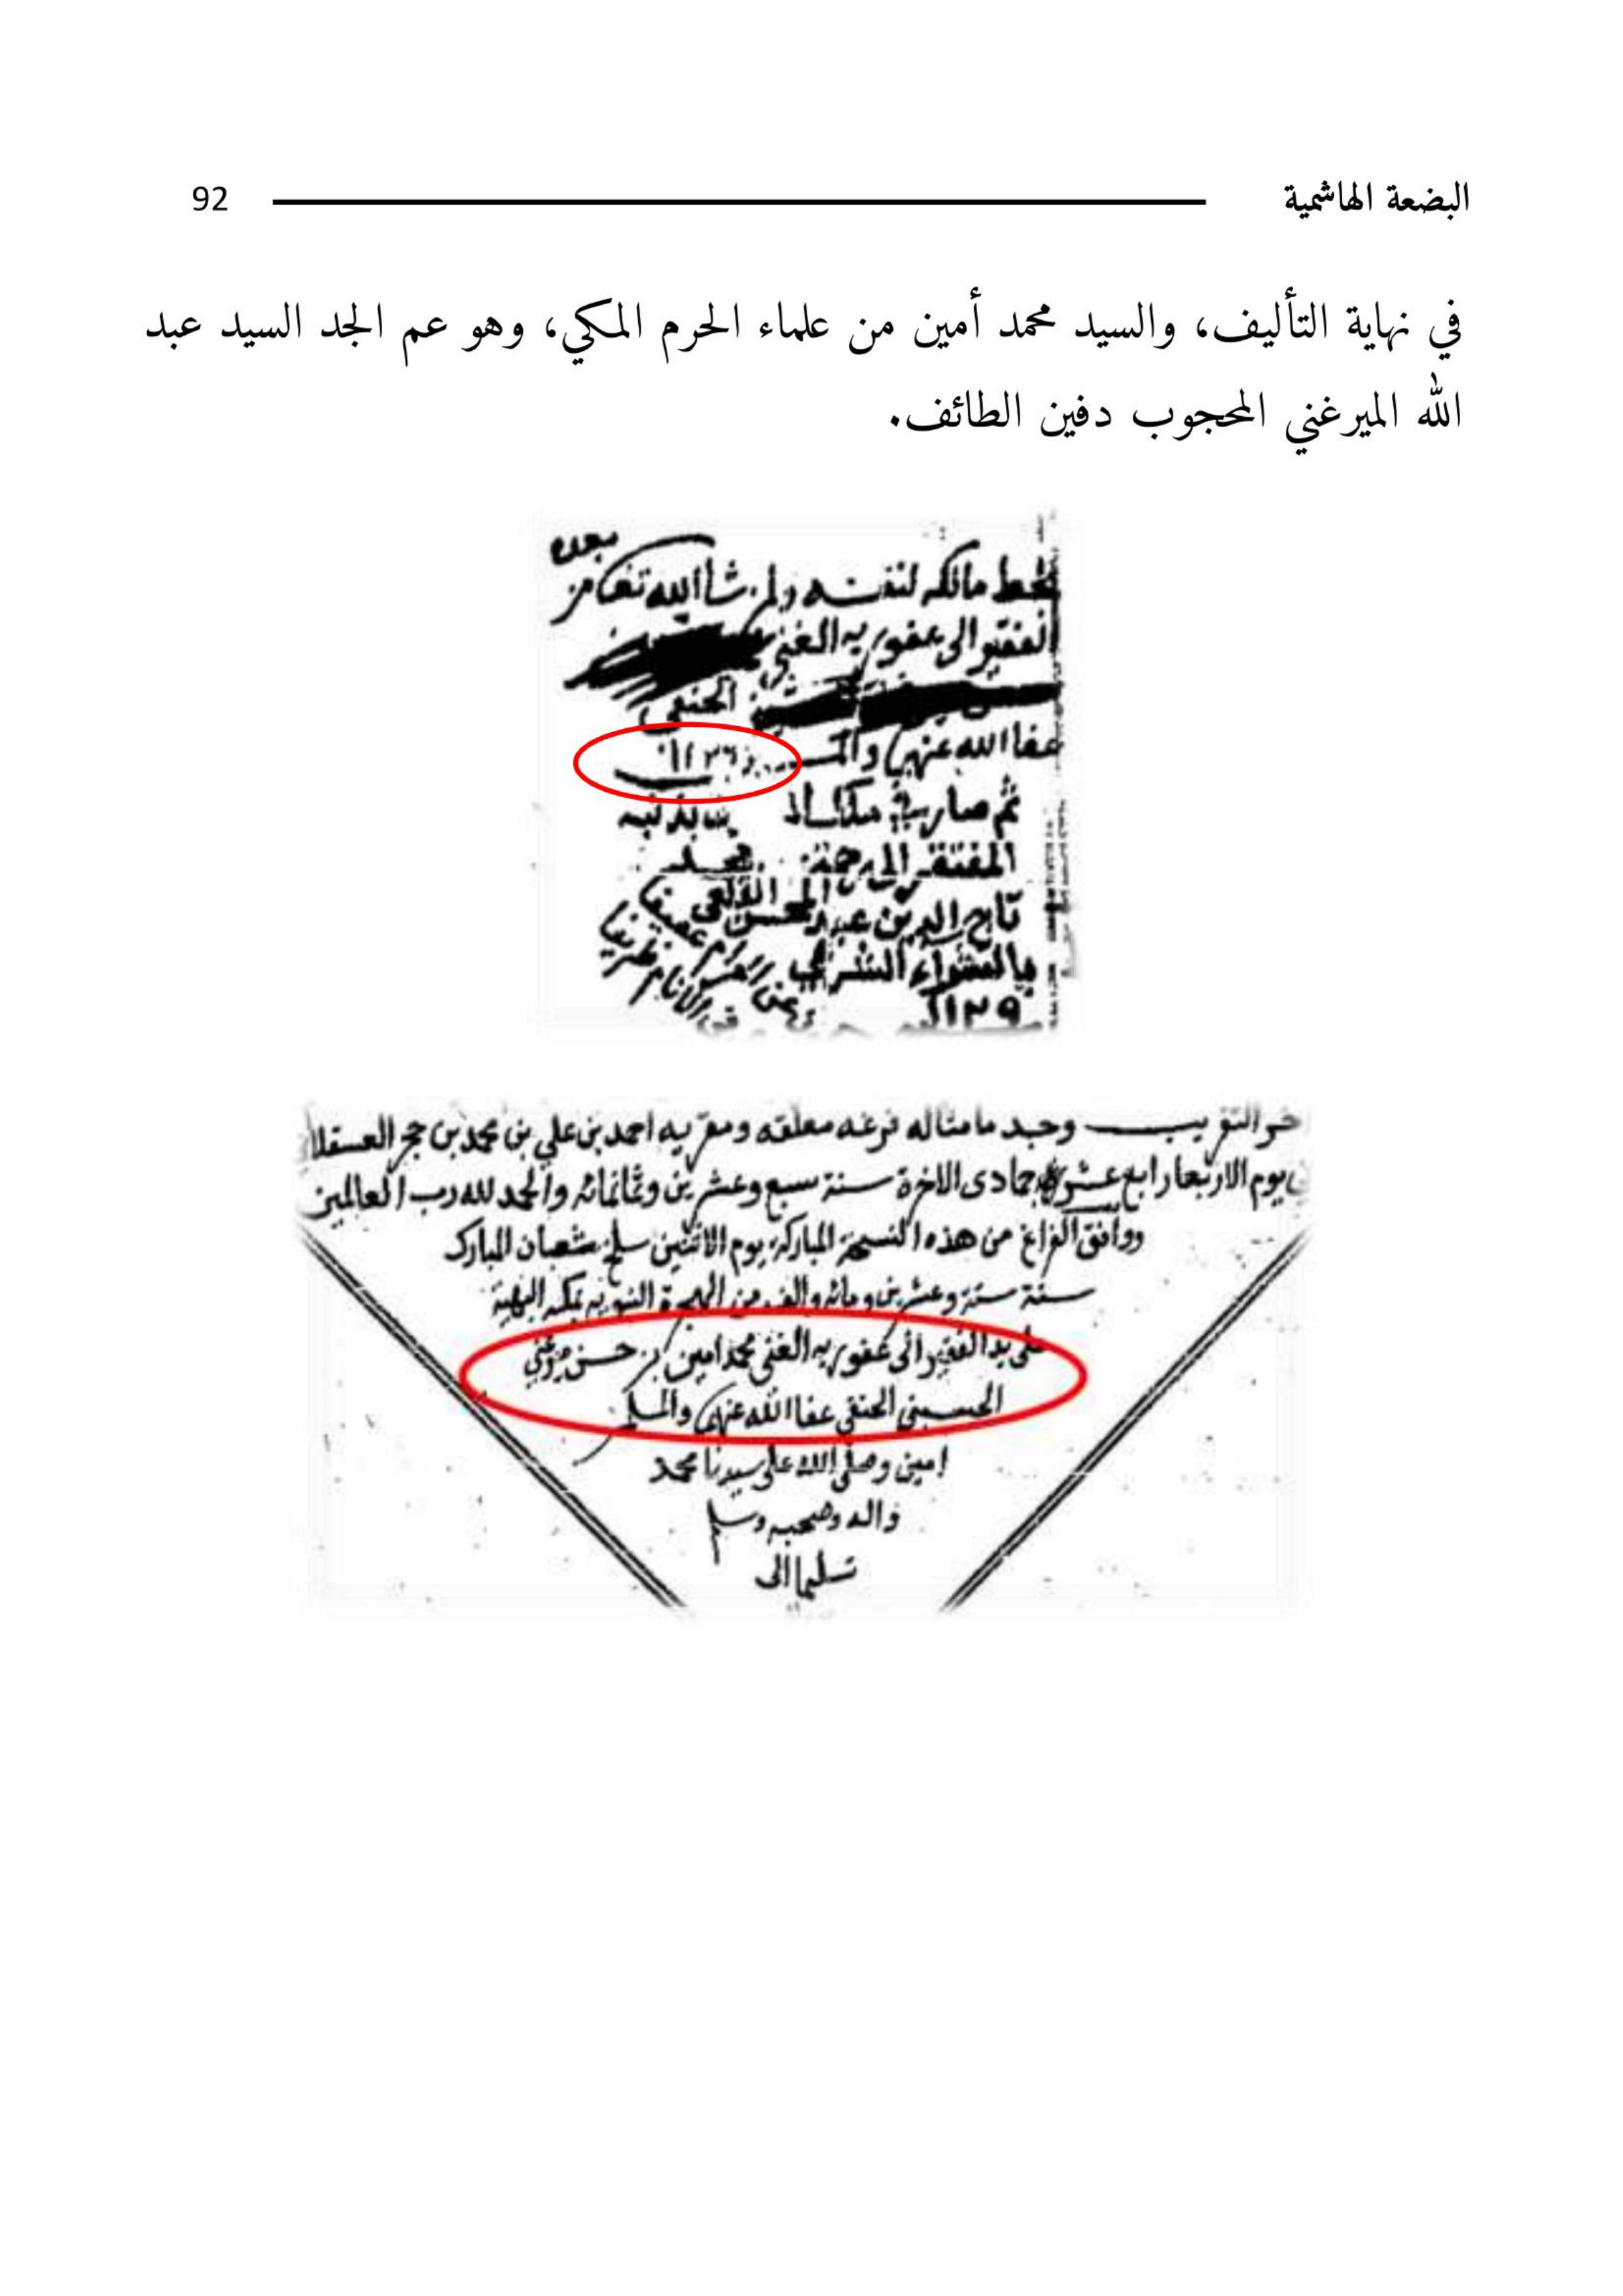 البضعة الهاشمية 92
في نهاية التأليف، والسيد محمد أمين من علماء الحرم المكي، وهو عم الجد السيد عبد
الله الميرغني المحجوب دفين الطائف.
بخط مالكه لنفسه ولمن شاا لله تعا من بعده
الفقير الى عفو ربه الغني
الحنفي
عفا الله عنهم
ثم صار في
المفتقر الى رحمة
تاج الدين عبد المحسن القلعي
بالشراء الشرعي
وحيد ما مثاله فرغه معلقه ومقربه احمد بن علي بن محمد بن حجر العسقلا
يوم الاربعا رابع عشر جمادى الاخرة سنة سبع وعشرين وثمانمائه والحمد لله رب العالمين
ووافق الفراغ من هذه النسخة المباركة يوم الاثنين سلخ شعبان المبارك
سنة ستة وعشرين ومائه والف من الهجرة النبويه بمكه البهية
على يد الفقير الى عفو ربه الغني محمد امين بن حسن ميرغني
الحسيني الحنفي عفا الله عنهم والمسلم
امين وصلى الله على سيدنا محمد
واله وصحبه وسلم
تسليما الى